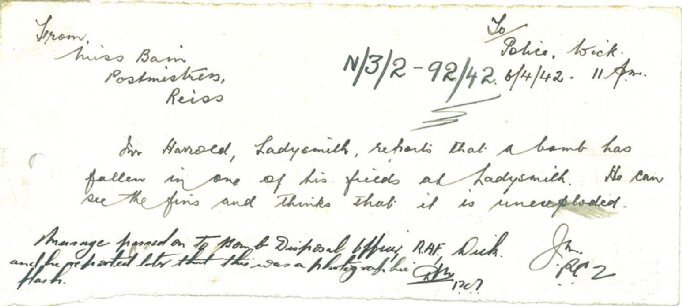 From,
Miss Bain
Postmistress,
Reiss
To
Police, Wick.
N/3/2-92/42. 6/4/42. 11 Am.
Mr Harrold, Ladysmith, reports that a bomb has
fallen in one of his fields at Ladysmith. He can
see the fins and thinks that it is unexploded.
Message passed on to Bomb Disposal Officer RAF, Wick.
and he reported later that this was a photographic
flash.
PC 2